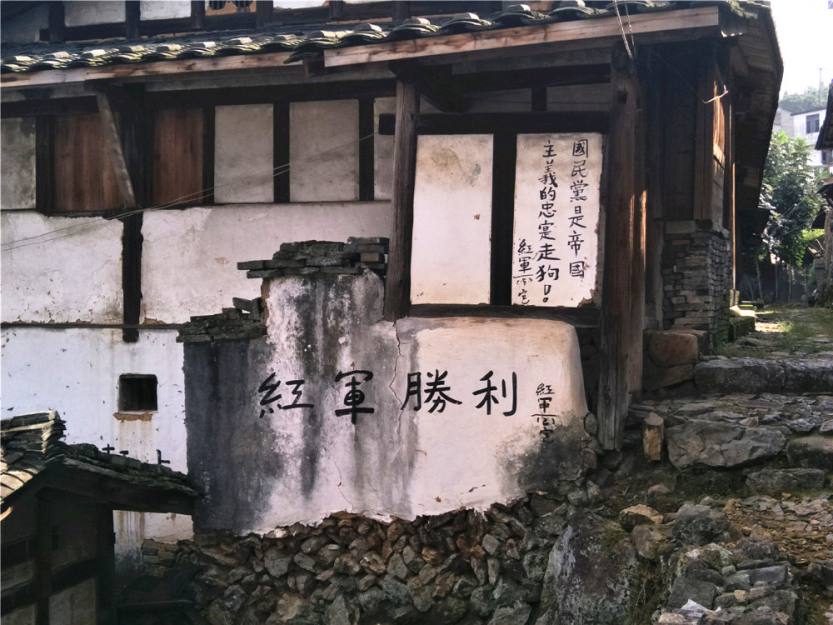 國民黨是帝國
主義的忠寔走狗!
紅軍㊢宣
紅軍勝利
紅軍㊢宣